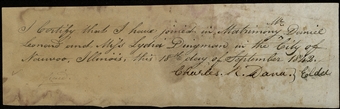 I Certify that I have joined in Matrimony Mr. Daniel
Leonard and Miss Lydia Dingman in the City of
Nauvoo, Illinois, this 18th day of September 1842.
Charles R. Dana, Elder